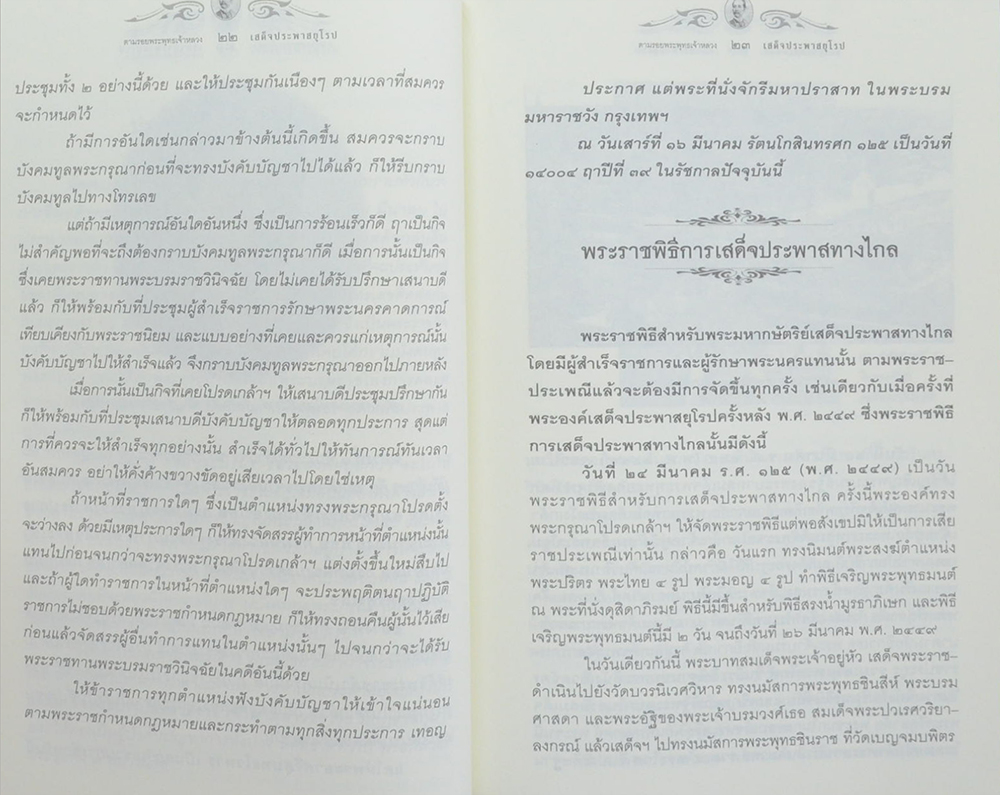 ตามรอยพระพุทธเจ้าหลวง ๒๒ เสด็จประพาสยุโรป
ประชุมทั้ง ๒ อย่างนี้ด้วย และให้ประชุมกันเนืองๆ ตามเวลาที่สมควร
จะกำหนดไว้
ถ้ามีการอันใดเช่นกล่าวมาข้างต้นนี้เกิดขึ้น สมควรจะกราบ
บังคมทูลพระกรุณาก่อนที่จะทรงบังคับบัญชาไปได้แล้ว ก็ให้รีบกราบ
บังคมทูลไปทางโทรเลข
แต่ถ้ามีเหตุการณ์อันใดอันหนึ่ง ซึ่งเป็นการร้อนเร็วก็ดี ฤาเป็นกิจ
ไม่สำคัญพอที่จะถึงต้องกราบบังคมทูลพระกรุณาก็ดี เมื่อการนั้นเป็นกิจ
ซึ่งเคยพระราชทานพระบรมราชวินิจฉัย โดยไม่เคยได้รับปรึกษาเสนาบดี
แล้ว ก็ให้พร้อมกับที่ประชุมผู้สำเร็จราชการรักษาพระนครคาดการณ์
เทียบเคียงกับพระราชนิยม และแบบอย่างที่เคยและควรแก่เหตุการณ์นั้น
บังคับบัญชาไปให้สำเร็จแล้ว จึงกราบบังคมทูลพระกรุณาออกไปภายหลัง
เมื่อการนั้นเป็นกิจที่เคยโปรดเกล้าฯ ให้เสนาบดีประชุมปรึกษากัน
ก็ให้พร้อมกับที่ประชุมเสนาบดีบังคับบัญชาให้ตลอดทุกประการ สุดแต่
การที่ควรจะให้สำเร็จทุกอย่างนั้น สำเร็จได้ทั่วไปให้ทันการณ์ทันเวลา
อันสมควร อย่าให้คั่งค้างขวางขัดอยู่เสียเวลาไปโดยใช่เหตุ
ถ้าหน้าที่ราชการใดๆ ซึ่งเป็นตำแหน่งทรงพระกรุณาโปรดตั้ง
จะว่างลง ด้วยมีเหตุประการใดๆ ก็ให้ทรงจัดสรรผู้ทำการหน้าที่ตำแหน่งนั้น
แทนไปก่อนจนกว่าจะทรงพระกรุณาโปรดเกล้าฯ แต่งตั้งขึ้นใหม่สืบไป
และถ้าผู้ใดทำราชการในหน้าที่ตำแหน่งใดๆ จะประพฤติตนฤาปฏิบัติ
ราชการไม่ชอบด้วยพระราชกำหนดกฎหมาย ก็ให้ทรงถอนคืนผู้นั้นไว้เสีย
ก่อนแล้วจัดสรรผู้อื่นทำการแทนในตำแหน่งนั้นๆ ไปจนกว่าจะได้รับ
พระราชทานพระบรมราชวินิจฉัยในคดีอันนี้ด้วย
ให้ข้าราชการทุกตำแหน่งฟังบังคับบัญชาให้เข้าใจแน่นอน
ตามพระราชกำหนดกฎหมายและกระทำตามทุกสิ่งทุกประการ เทอญ
ตามรอยพระพุทธเจ้าหลวง ๒๓ เสด็จประพาสยุโรป
ประกาศ แต่พระที่นั่งจักรีมหาปราสาท ในพระบรม
มหาราชวัง กรุงเทพฯ
ณ วันเสาร์ที่ ๑๖ มีนาคม รัตนโกสินทรศก ๑๒๕ เป็นวันที่
๑๔๐๐๔ ฤาปีที่ ๓๙ ในรัชกาลปัจจุบันนี้
พระราชพิธีการเสด็จประพาสทางไกล
พระราชพิธีสำหรับพระมหากษัตริย์เสด็จประพาสทางไกล
โดยมีผู้สำเร็จราชการและผู้รักษาพระนครแทนนั้น ตามพระราช–
ประเพณีแล้วจะต้องมีการจัดขึ้นทุกครั้ง เช่นเดียวกับเมื่อครั้งที่
พระองค์เสด็จประพาสยุโรปครั้งหลัง พ.ศ. ๒๔๔๙ ซึ่งพระราชพิธี
การเสด็จประพาสทางไกลนั้นมีดังนี้
วันที่ ๒๔ มีนาคม ร.ศ. ๑๒๕ (พ.ศ. ๒๔๔๙) เป็นวัน
พระราชพิธีสำหรับการเสด็จประพาสทางไกล ครั้งนี้พระองค์ทรง
พระกรุณาโปรดเกล้าฯ ให้จัดพระราชพิธีแต่พอสังเขปมิให้เป็นการเสีย
ราชประเพณีเท่านั้น กล่าวคือ วันแรก ทรงนิมนต์พระสงฆ์ตำแหน่ง
พระปริตร พระไทย ๔ รูป พระมอญ ๔ รูป ทำพิธีเจริญพระพุทธมนต์
ณ พระที่นั่งดุสิดาภิรมย์ พิธีนี้มีขึ้นสำหรับพิธีสรงน้ำมูรธาภิเษก และพิธี
เจริญพระพุทธมนต์นี้มี ๒ วัน จนถึงวันที่ ๒๖ มีนาคม พ.ศ. ๒๔๔๙
ในวันเดียวกันนี้ พระบาทสมเด็จพระเจ้าอยู่หัว เสด็จพระราช–
ดำเนินไปยังวัดบวรนิเวศวิหาร ทรงนมัสการพระพุทธชินสีห์ พระบรม
ศาสดา และพระอัฐิของพระเจ้าบรมวงศ์เธอ สมเด็จพระปวเรศวริยา–
ลงกรณ์ แล้วเสด็จฯ ไปทรงนมัสการพระพุทธชินราช ที่วัดเบญจมบพิตร